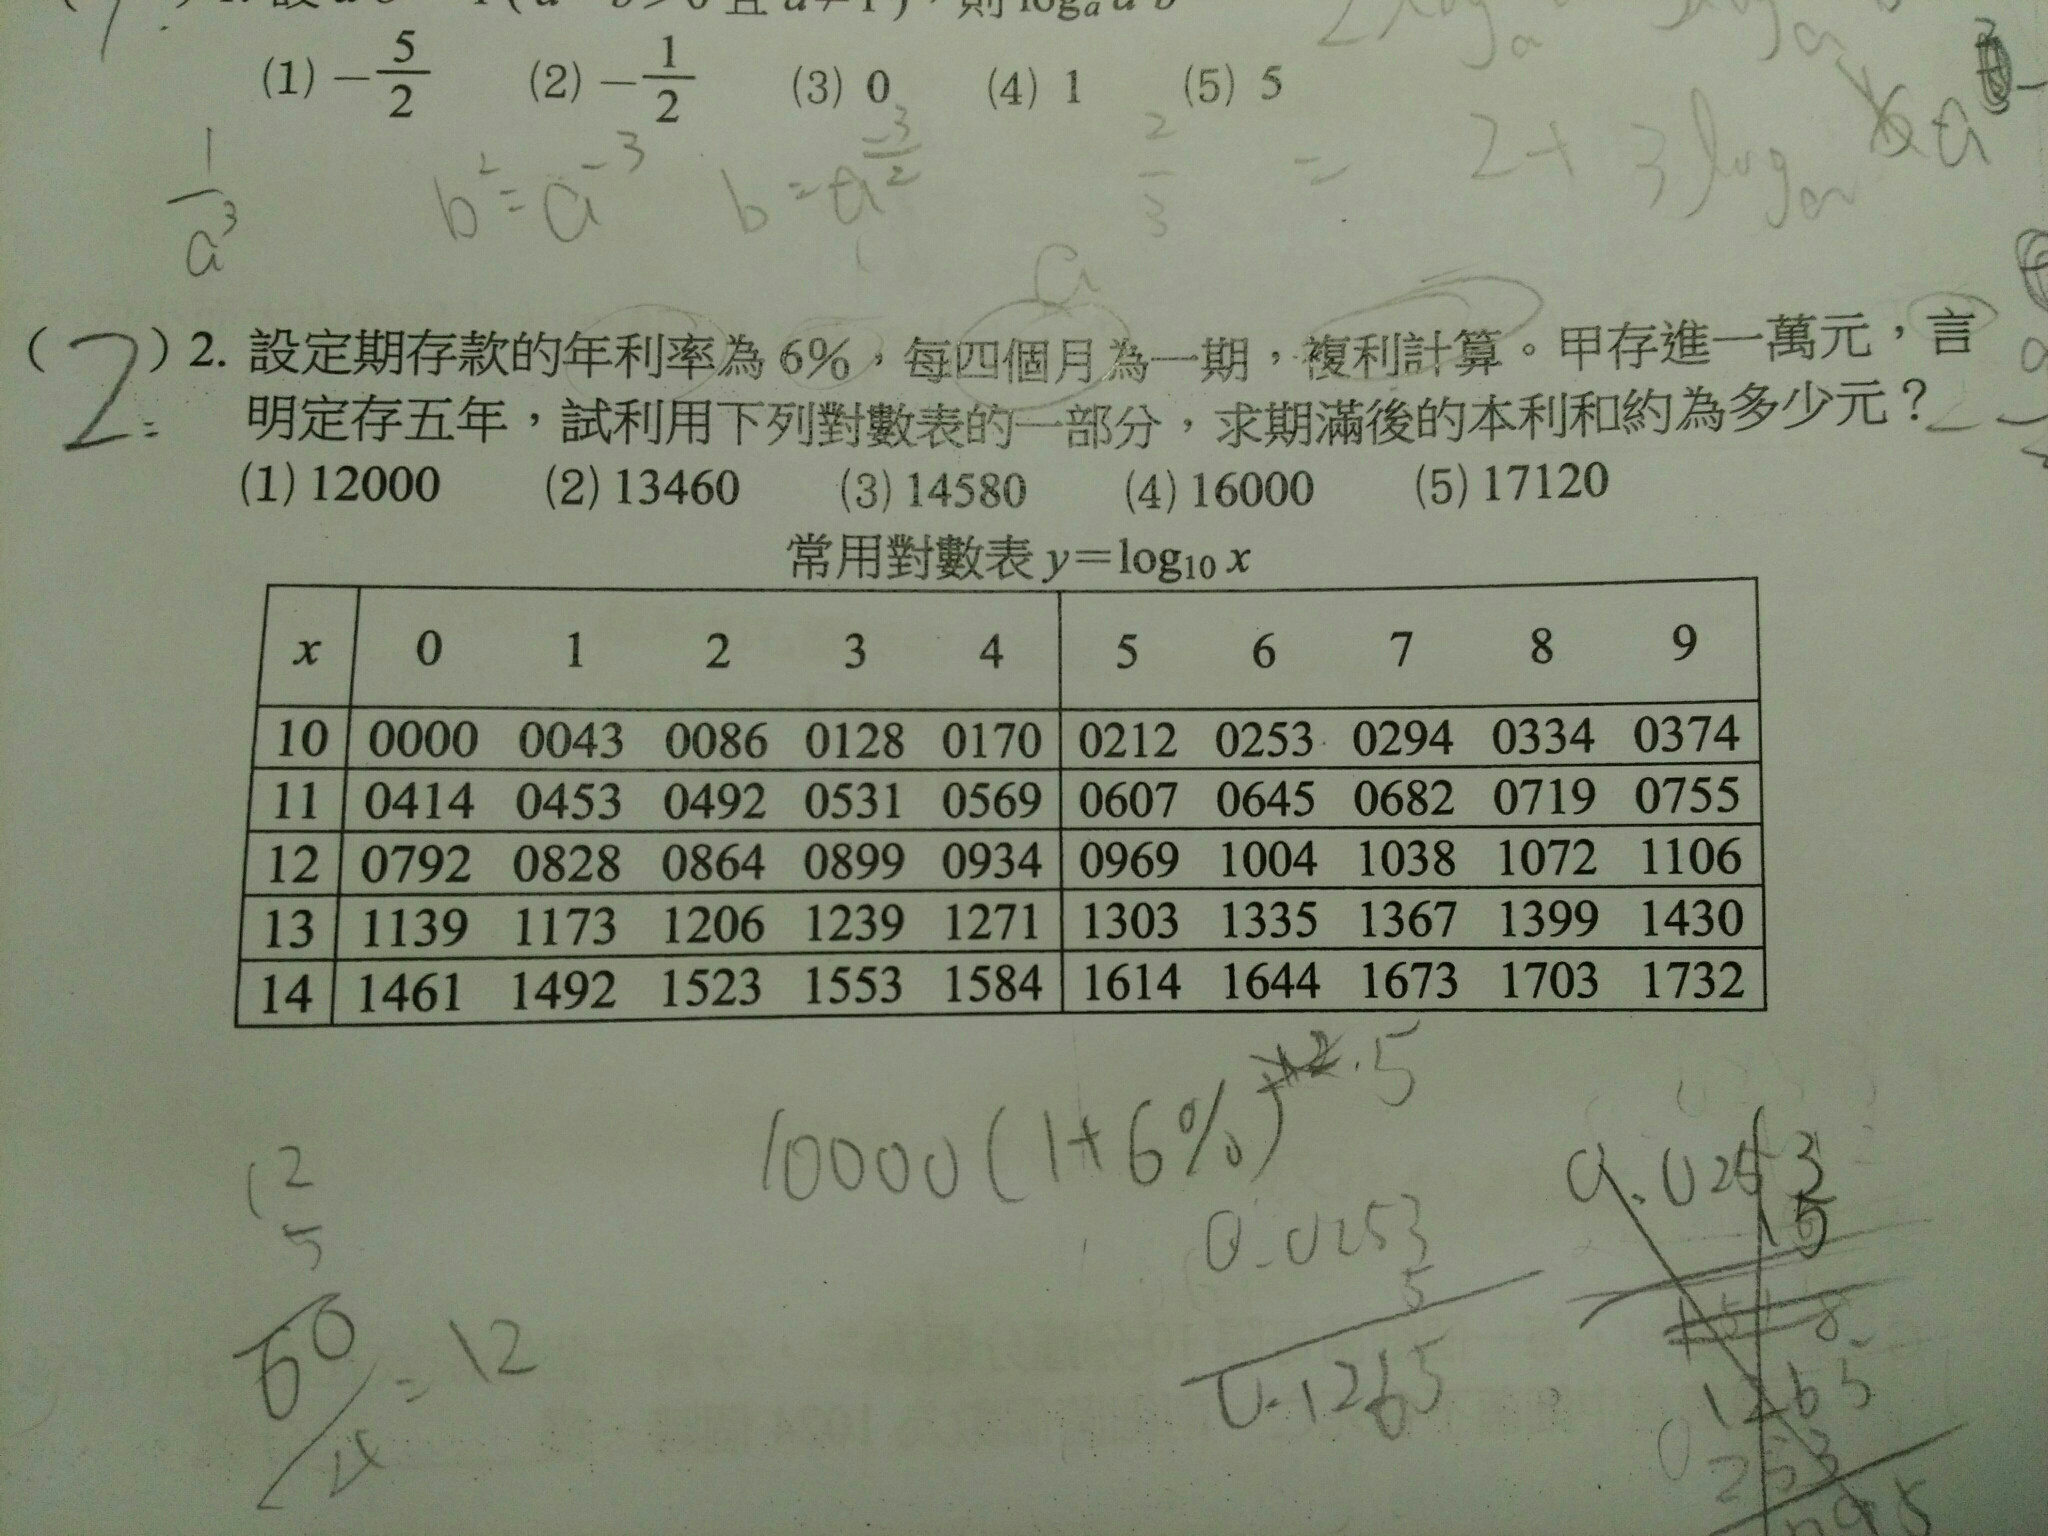 (1) −5/2 (2) −1/2 (3) 0 (4) 1 (5) 5
1/a³ b²=a⁻³ b=a^(−3/2) 2/3 = 2+3 log
a
(2)2. 設定期存款的年利率為 6%，每四個月為一期，複利計算。甲存進一萬元，言
明定存五年，試利用下列對數表的一部分，求期滿後的本利和約為多少元？
(1) 12000 (2) 13460 (3) 14580 (4) 16000 (5) 17120
常用對數表 y=log₁₀ x
x 0 1 2 3 4 5 6 7 8 9
10 0000 0043 0086 0128 0170 0212 0253 0294 0334 0374
11 0414 0453 0492 0531 0569 0607 0645 0682 0719 0755
12 0792 0828 0864 0899 0934 0969 1004 1038 1072 1106
13 1139 1173 1206 1239 1271 1303 1335 1367 1399 1430
14 1461 1492 1523 1553 1584 1614 1644 1673 1703 1732
10000(1+6%) 5
12
5
60/4=12
0.0253
5
0.1265
0.0253
15
1265
253